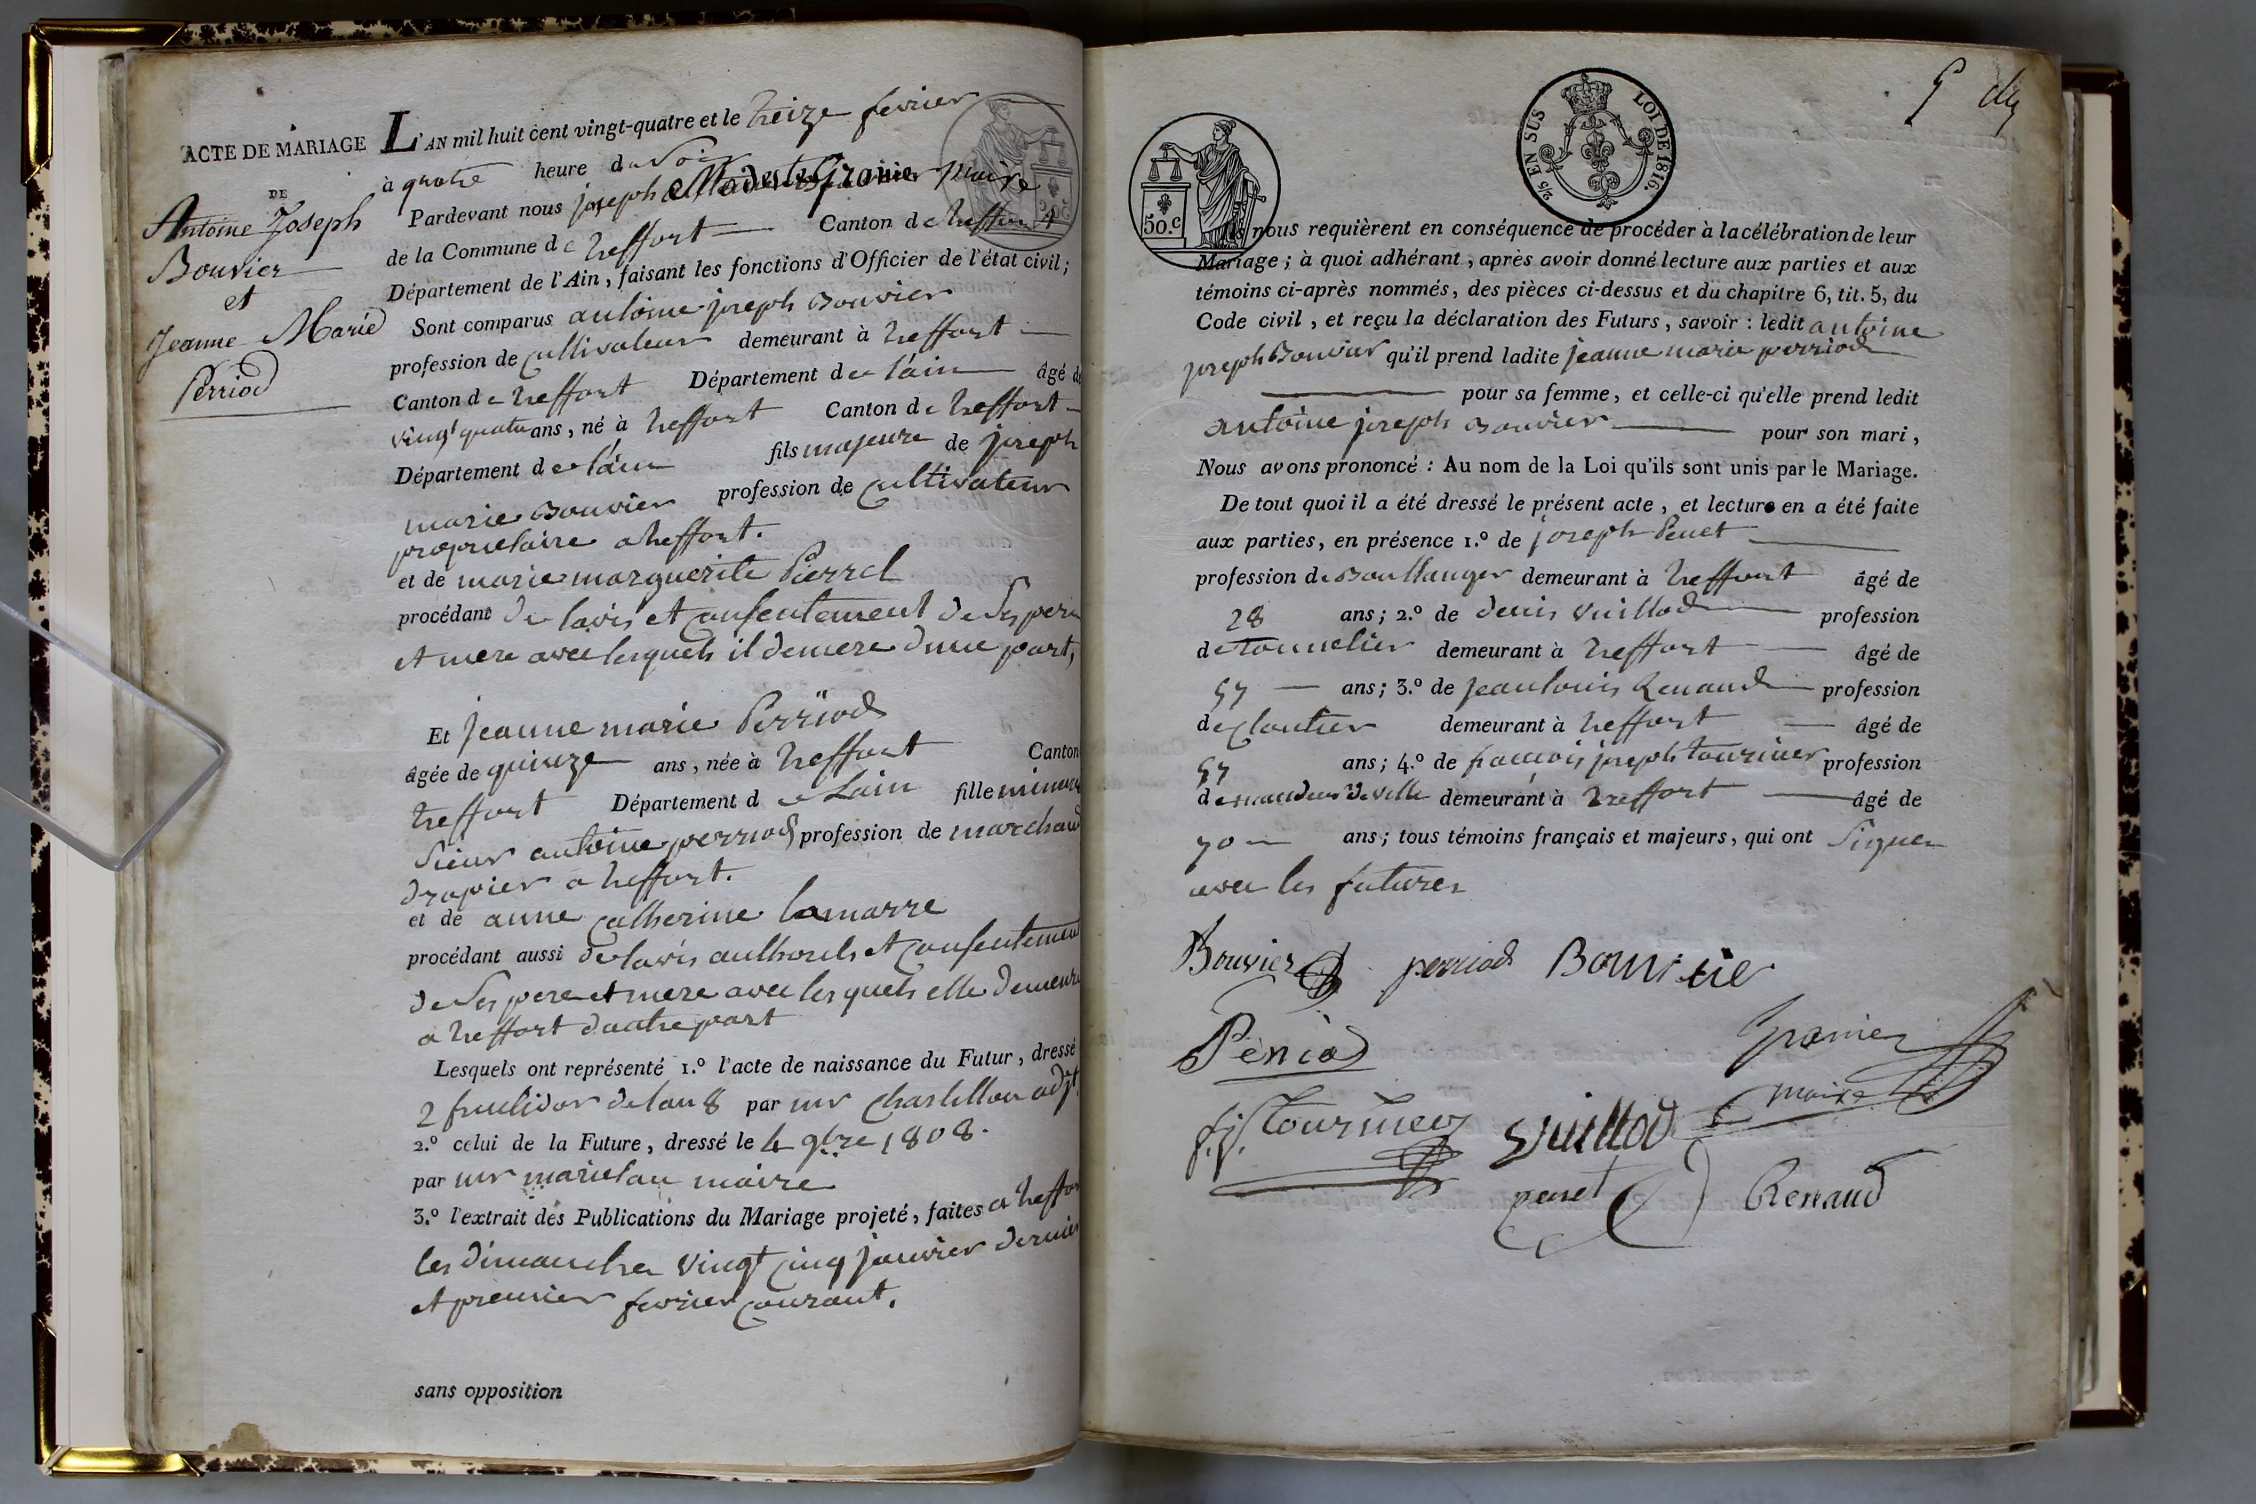 ACTE DE MARIAGE
DE
Antoine Joseph
Bouvier
et
Jeanne Marie
Perriod
L'AN mil huit cent vingt-quatre et le treize fevrier
à quatre heure du Soir
Pardevant nous joseph Modeste Granier Maire
de la Commune de treffort Canton de treffort
Département de l'Ain, faisant les fonctions d'Officier de l'état civil;
Sont comparus antoine joseph Bouvier
profession de Cultivateur demeurant à treffort
Canton de treffort Département de lain âgé de
vingt quatre ans, né à treffort Canton de treffort
Département de lain fils majeure de joseph
marie Bouvier profession de Cultivateur
proprietaire a treffort.
et de marie marguerite Pierrel
procédant de lavis et Consentement de Ses pere
et mere avec lesquels il demere dune part,
Et jeanne marie Perriod
âgée de quinze ans, née à treffort Canton
treffort Département de Lain fille mineure
Sieur antoine perriod profession de marchand
drapier a treffort.
et de anne Catherine lamarre
procédant aussi de lavis authorité et Consentement
de Ses pere et mere avec les quels elle demeure
a treffort dautre part
Lesquels ont représenté 1.º l'acte de naissance du Futur, dressé
2 fructidor de lan 8 par mr Chastillon adjt
2.º celui de la Future, dressé le 4 9bre 1808.
par mr marietan maire
3.º l'extrait des Publications du Mariage projeté, faites a treffort
les dimanches vingt Cinq janvier dernier
et premier fevrier Courant.
sans opposition
50.C
2/5 EN SUS LOI DE 1816.
Ils nous requièrent en conséquence de procéder à la célébration de leur
Mariage; à quoi adhérant, après avoir donné lecture aux parties et aux
témoins ci-après nommés, des pièces ci-dessus et du chapitre 6, tit. 5, du
Code civil, et reçu la déclaration des Futurs, savoir: ledit antoine
joseph Bouvier qu'il prend ladite jeanne marie perriod
pour sa femme, et celle-ci qu'elle prend ledit
antoine joseph Bouvier pour son mari,
Nous avons prononcé: Au nom de la Loi qu'ils sont unis par le Mariage.
De tout quoi il a été dressé le présent acte, et lecture en a été faite
aux parties, en présence 1.º de joseph Penet
profession de Boullanger demeurant à treffort âgé de
28 ans; 2.º de denis Vuillod profession
de tonnelier demeurant à treffort âgé de
57 ans; 3.º de jean louis Renaud profession
de cloutier demeurant à treffort âgé de
57 ans; 4.º de francois joseph tournier profession
de demeurant à treffort âgé de
70 ans; tous témoins français et majeurs, qui ont Signer
avec les futures
Bouvier perriod Bouvier
Pèriod
Granier
maire
f.j. Tournier Vuillod
penet Renaud